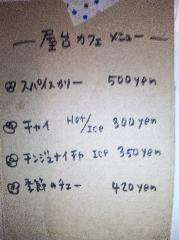 屋台カフェ メニュー
スパイスカリー 500yen
チャイ Hot/Ice 300yen
チンジュナイチャ Ice 350yen
季節のチェー 420yen